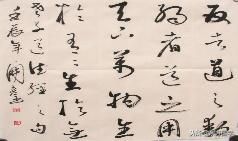 反者道之動
弱者道之用
天下萬物生
於有有生於無
老子道德經之句
壬辰年